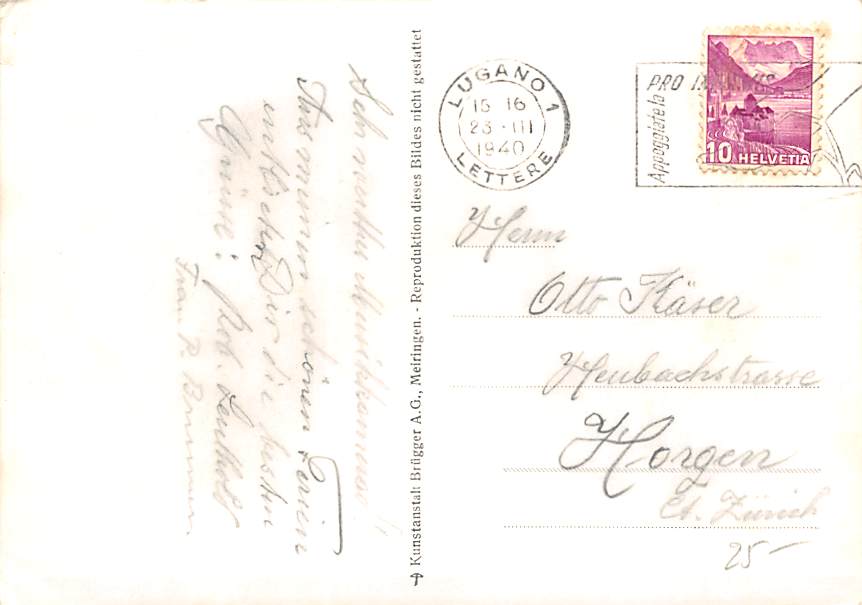 Sehr werther Musikkamerad!
Aus meinen schönen Ferien
entbietet Dir die besten
Grüsse: Rob. Leuthold
Frau P. Brunner
Kunstanstalt Brügger A.G., Meiringen. - Reproduktion dieses Bildes nicht gestattet
LUGANO 1
15-16
23·III
1940
LETTERE
PRO
Appoggiate la
10 HELVETIA
Herrn
Otto Käser
Heubachstrasse
Horgen
Kt. Zürich
25-